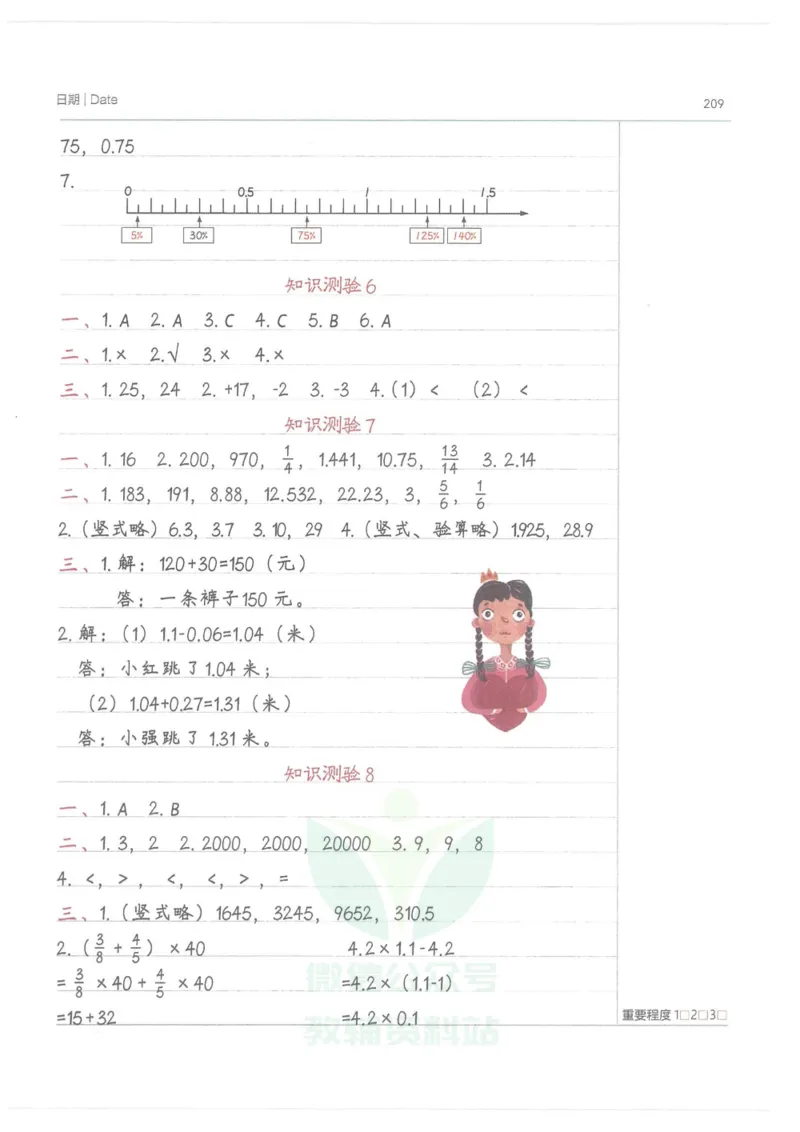 日期 | Date
209
75, 0.75
7.
0 0.5 1 1.5
5% 30% 75% 125% 140%
知识测验6
一、1. A 2. A 3. C 4. C 5. B 6. A
二、1. × 2. √ 3. × 4. ×
三、1. 25, 24 2. +17, -2 3. -3 4. (1) < (2) <
知识测验7
一、1. 16 2. 200, 970, 1/4, 1.441, 10.75, 13/14 3. 2.14
二、1. 183, 191, 8.88, 12.532, 22.23, 3, 5/6, 1/6
2. (竖式略) 6.3, 3.7 3. 10, 29 4. (竖式、验算略) 1.925, 28.9
三、1. 解: 120+30=150 (元)
答: 一条裤子150元。
2. 解: (1) 1.1-0.06=1.04 (米)
答: 小红跳了1.04米;
(2) 1.04+0.27=1.31 (米)
答: 小强跳了1.31米。
知识测验8
一、1. A 2. B
二、1. 3, 2 2. 2000, 2000, 20000 3. 9, 9, 8
4. <, >, <, <, >, =
三、1. (竖式略) 1645, 3245, 9652, 310.5
2. (3/8 + 4/5) × 40 4.2×1.1-4.2
= 3/8 × 40 + 4/5 × 40 =4.2×(1.1-1)
=15+32 =4.2×0.1
微信公众号
教辅资料站
重要程度 1□2□3□